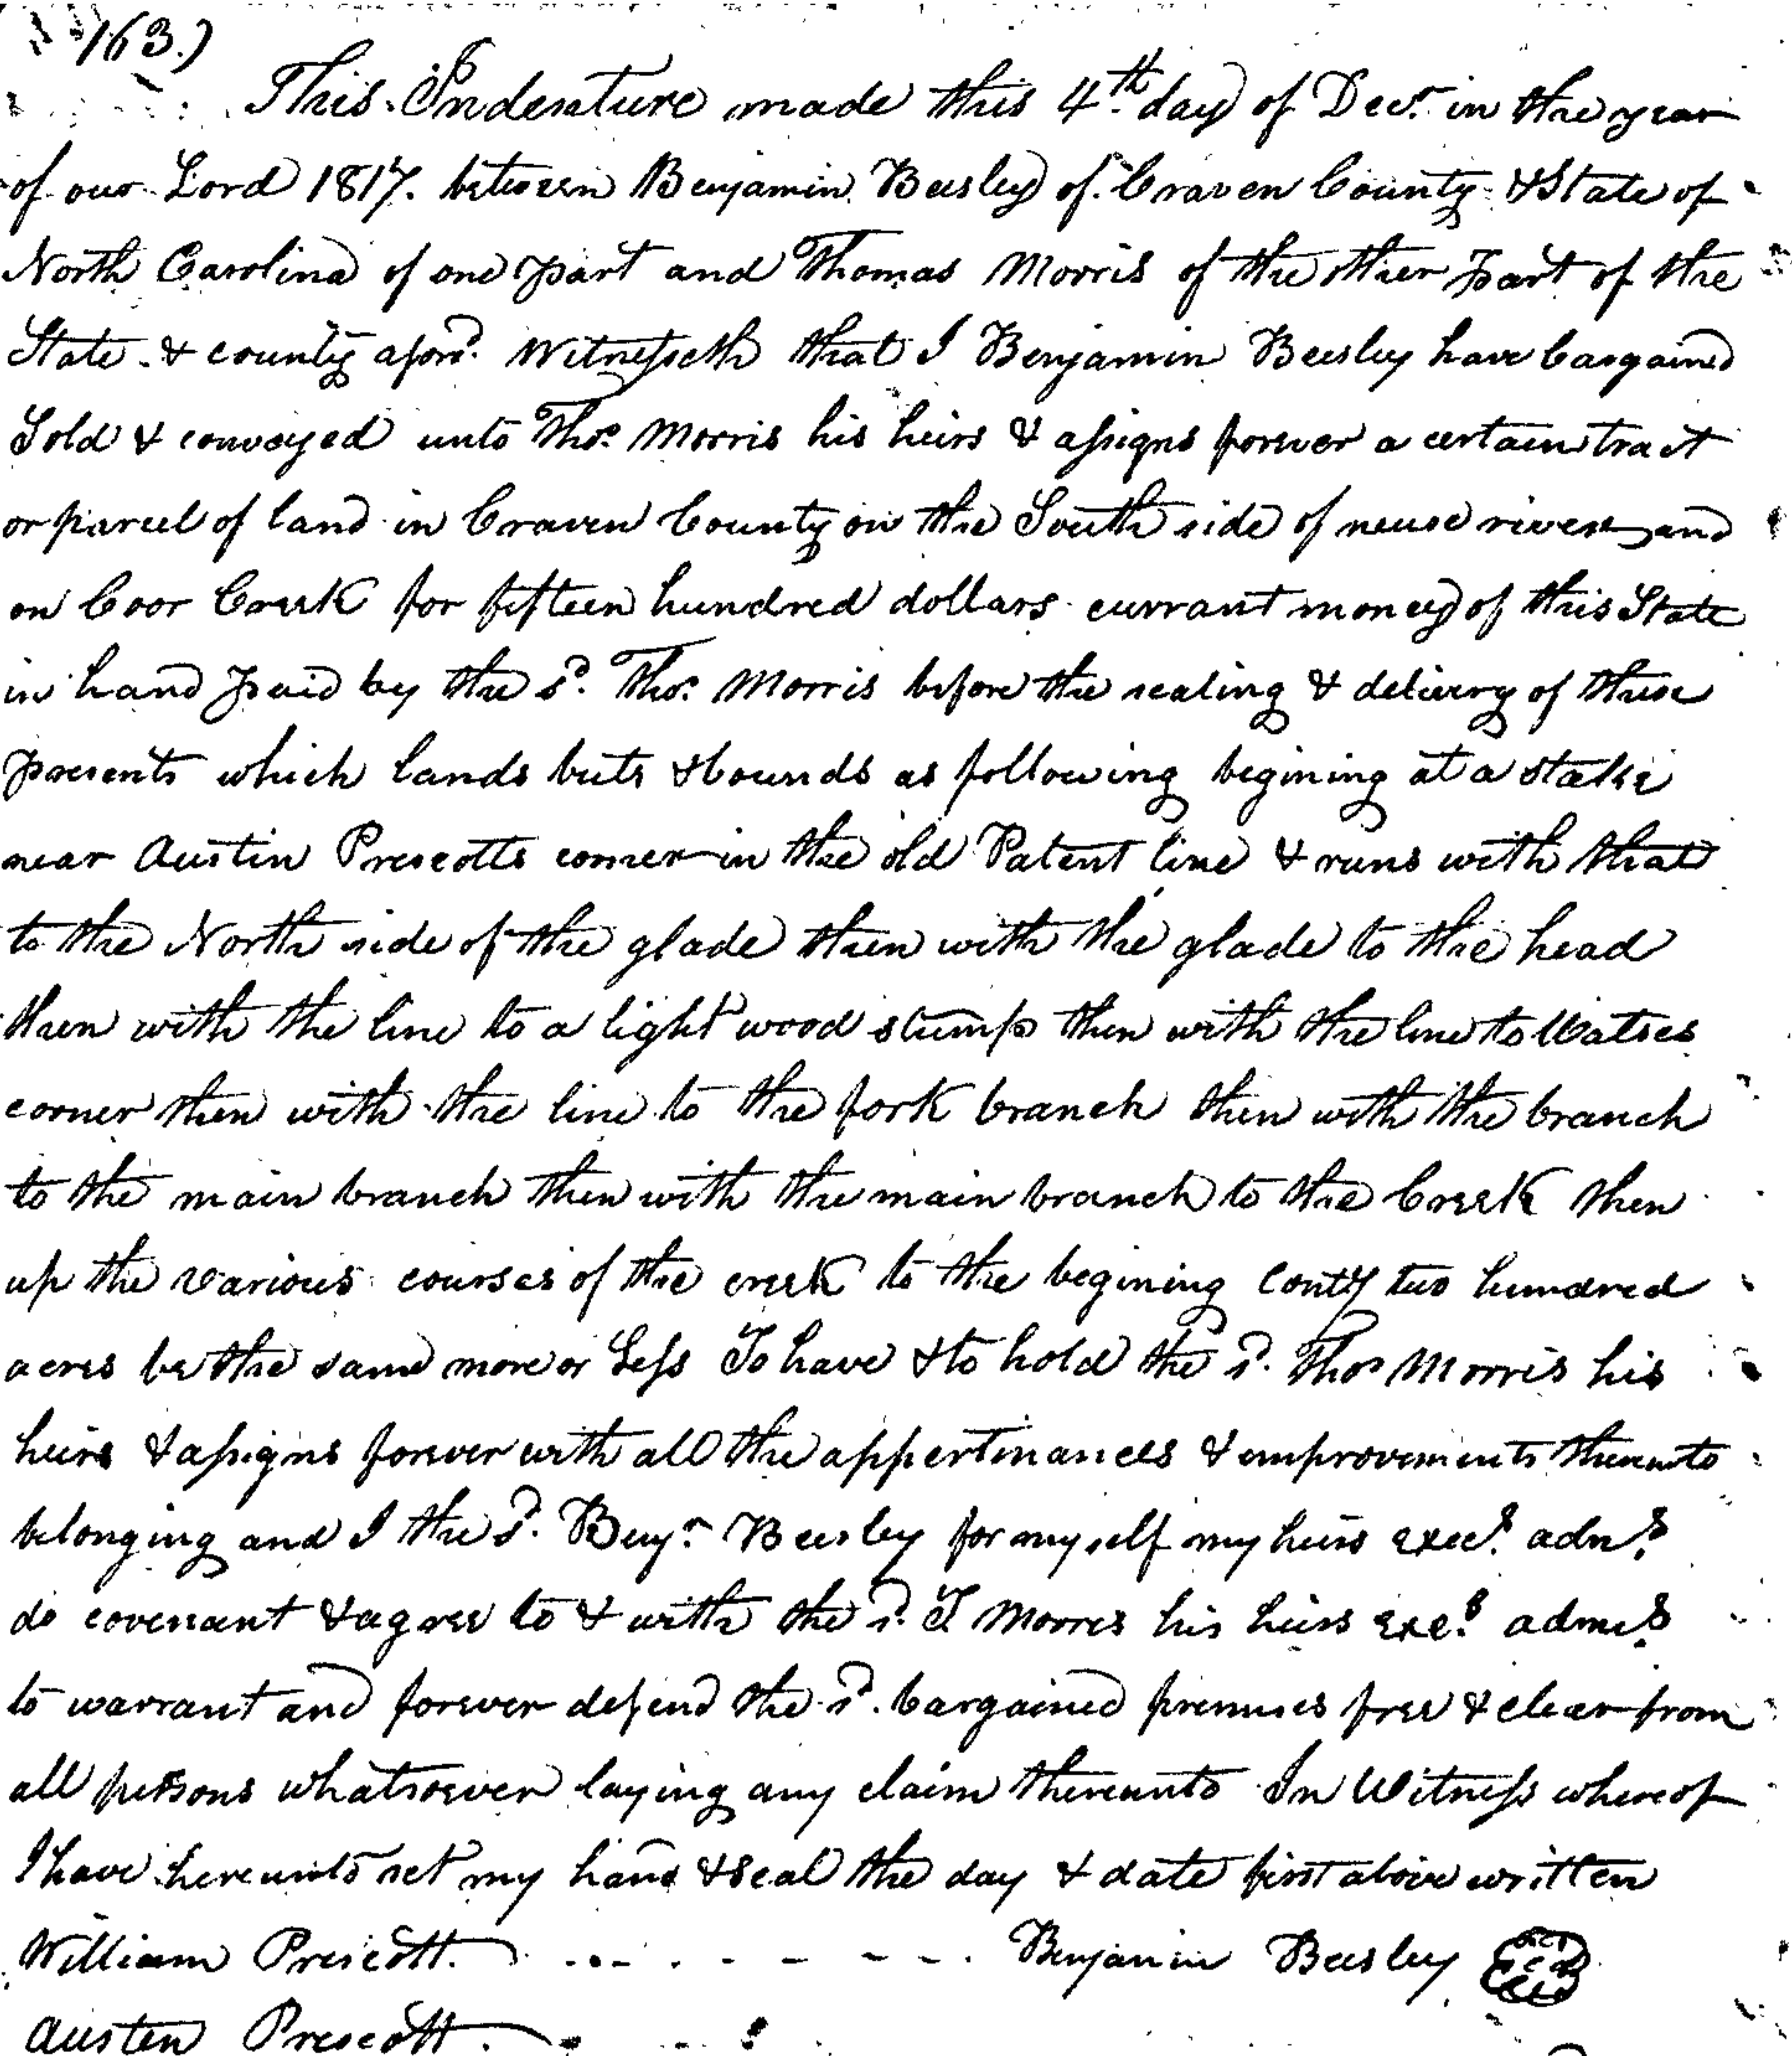 163.)
This Indenture made this 4th day of Decr. in the year
of our Lord 1817. between Benjamin Beesley of Craven County & State of
North Carolina of one part and Thomas Morris of the other part of the
State & county aforsd. Witnesseth that I Benjamin Beesley have bargained
Sold & conveyed unto Thos. Morris his heirs & assigns forever a certain tract
or parcel of land in Craven County on the South side of neuse river and
on Coor Creek for fifteen hundred dollars currant money of this State
in hand paid by the sd. Thos. Morris before the sealing & delivery of these
presents which lands buts & bounds as following begining at a stake
near Austin Prescotts corner in the old Patent line & runs with that
to the North side of the glade then with the glade to the head
then with the line to a light wood stump then with the line to
corner then with the line to the fork branch then with the branch
to the main branch then with the main branch to the Creek then
up the various courses of the creek to the begining Contg two hundred
acres be the same more or Less To have & to hold the sd. Thos Morris his
heirs & assigns forever with all the appertinances & emprovements thereunto
belonging and I the sd. Benjn. Beesley for myself my heirs execs. adms.
do covenant & agree to & with the sd. T Morris his heirs exes. admrs.
to warrant and forever defend the sd. bargained premises free & clear from
all persons whatsoever laying any claim thereunto In Witness whereof
I have hereunto set my hand & seal the day & date first above written
William Prescott. Benjamin Beesley
Austen Prescott.